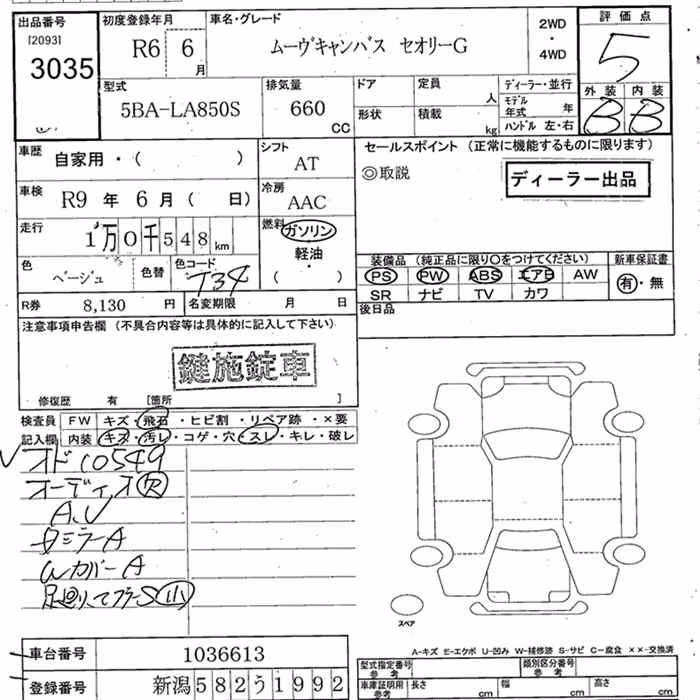 出品番号 初度登録年月 車名・グレード 2WD・4WD 評価点
[2093]
3035 R6 6月 ムーヴキャンバス セオリーG 5
型式 排気量 ドア 定員 人 ディーラー・並行 外装 内装
5BA-LA850S 660 CC 形状 積載 kg モデル年式 年 B B
ハンドル 左・右
車歴 自家用・( ) シフト AT セールスポイント (正常に機能するものに限ります)
◎取説
ディーラー出品
車検 R9 年 6 月 ( 日) 冷房 AAC
走行 1万0千548km 燃料 ガソリン・軽油・( )
装備品 (純正品に限り○をつけてください) 新車保証書
色 ベージュ 色替 色コード T34 PS PW ABS エアB AW 有・無
SR ナビ TV カワ
R券 8,130 円 名変期限 月 日 後日品
注意事項申告欄 (不具合内容等は具体的に記入して下さい)
鍵施錠車
修復歴 有 [箇所 ]
検査員 FW キズ・飛石・ヒビ割・リペア跡・×要
記入欄 内装 キズ・汚レ・コゲ・穴・スレ・キレ・破レ
オド10549
オーディオ欠
A.U
ミラーA
WカバーA
スペア
A-キズ E-エクボ U-凹み W-補修跡 S-サビ C-腐食 ××-交換済
車台番号 1036613 型式指定番号参考 類別区分番号参考
登録番号 新潟582う1992 車庫証明用参考 長さ cm 幅 cm 高さ cm